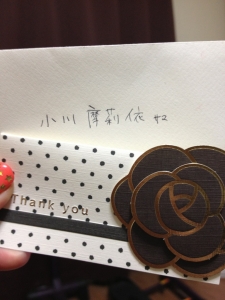 小川 摩莉依 より
Thank you